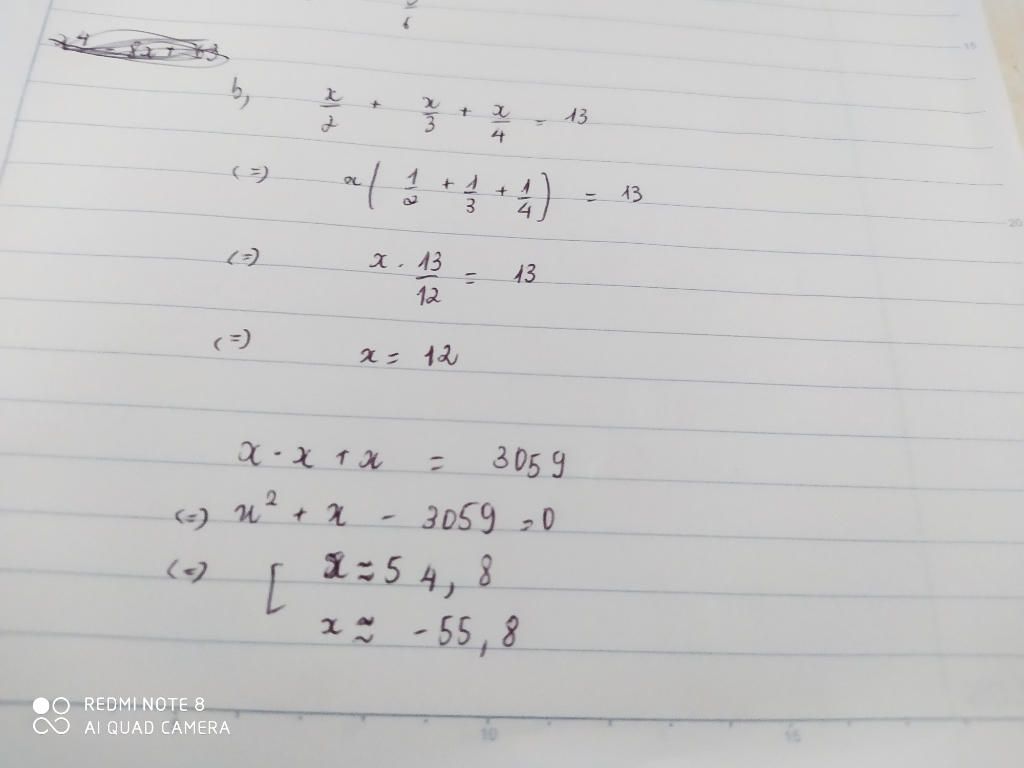 6
b, x/2 + x/3 + x/4 = 13
(=) x ( 1/2 + 1/3 + 1/4 ) = 13
(=) x . 13/12 = 13
(=) x = 12
x . x + x = 3059
(=) x² + x - 3059 = 0
(=) [ x ≈ 54,8
x ≈ -55,8
REDMI NOTE 8
AI QUAD CAMERA
10 15
15
20